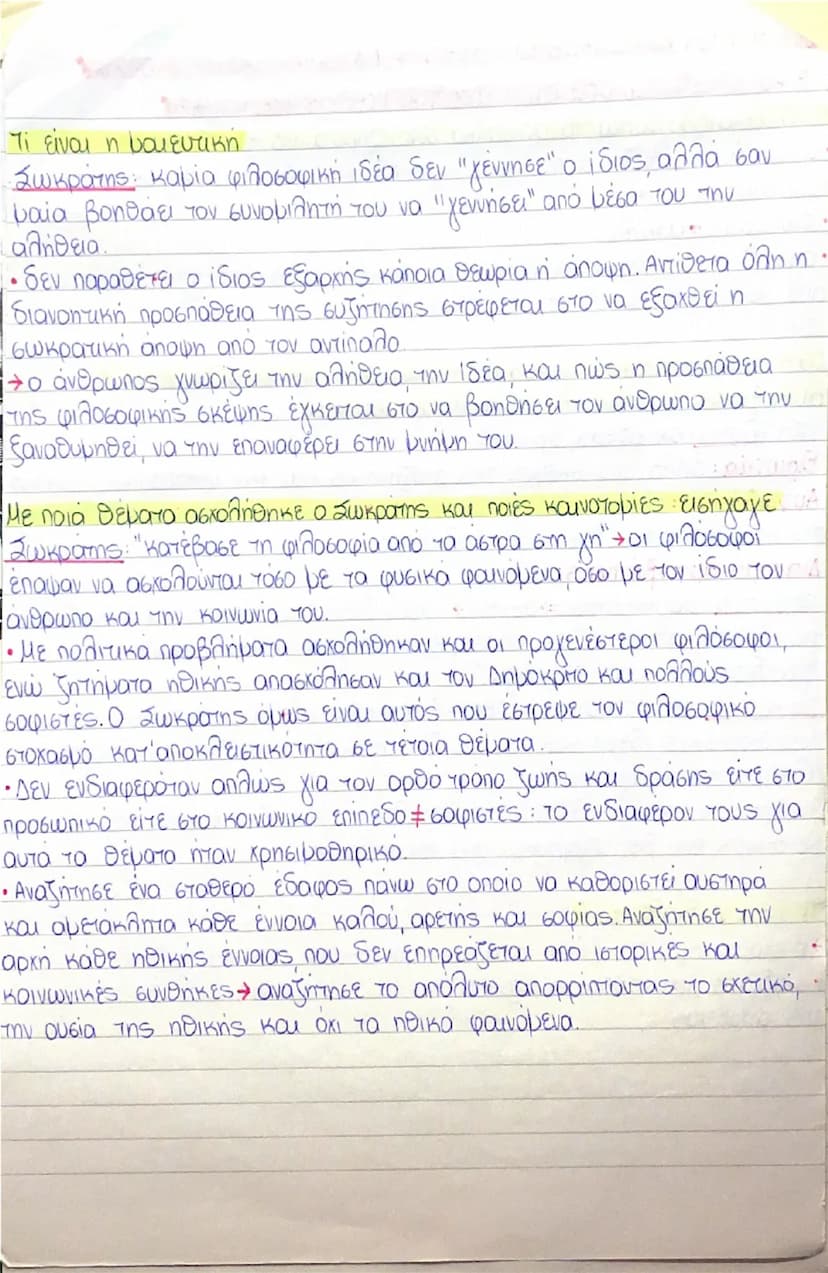 Τί είναι η μαιευτική
Σωκράτης: καμία φιλοσοφική ιδέα δεν "γέννησε" ο ίδιος, αλλά σαν
μαία βοηθάει τον συνομιλητή του να "γεννήσει" από μέσα του την
αλήθεια.
• δεν παραθέτει ο ίδιος εξαρχής κάποια θεωρία ή άποψη. Αντίθετα όλη η
διανοητική προσπάθεια της συζήτησης στρέφεται στο να εξαχθεί η
σωκρατική άποψη από τον αντίπαλο.
→ ο άνθρωπος γνωρίζει την αλήθεια, την Ιδέα, και πώς η προσπάθεια
της φιλοσοφικής σκέψης έγκειται στο να βοηθήσει τον άνθρωπο να την
ξαναθυμηθεί, να την επαναφέρει στην μνήμη του.
Με ποιά θέματα ασχολήθηκε ο Σωκράτης και ποιές καινοτομίες εισήγαγε
Σωκράτης: "κατέβασε τη φιλοσοφία από τα άστρα στη γη" → οι φιλόσοφοι
έπαψαν να ασχολούνται τόσο με τα φυσικά φαινόμενα, όσο με τον ίδιο τον
άνθρωπο και την κοινωνία του.
• Με πολιτικά προβλήματα ασχολήθηκαν και οι προγενέστεροι φιλόσοφοι,
ενώ ζητήματα ηθικής απασχόλησαν και τον Δημόκριτο και πολλούς
σοφιστές. Ο Σωκράτης όμως είναι αυτός που έστρεψε τον φιλοσοφικό
στοχασμό κατ'αποκλειστικότητα σε τέτοια θέματα.
• Δεν ενδιαφερόταν απλώς για τον ορθό τρόπο ζωής και δράσης είτε στο
προσωπικό είτε στο κοινωνικό επίπεδο ≠ σοφιστές: το ενδιαφέρον τους για
αυτά τα θέματα ήταν χρησιμοθηρικό.
• Αναζήτησε ένα σταθερό έδαφος πάνω στο οποίο να καθοριστεί αυστηρά
και αμετάκλητα κάθε έννοια καλού, αρετής και σοφίας. Αναζήτησε την
αρχή κάθε ηθικής έννοιας, που δεν επηρεάζεται από ιστορικές και
κοινωνικές συνθήκες → αναζήτησε το απόλυτο απορρίπτοντας το σχετικό,
την ουσία της ηθικής και όχι τα ηθικά φαινόμενα.